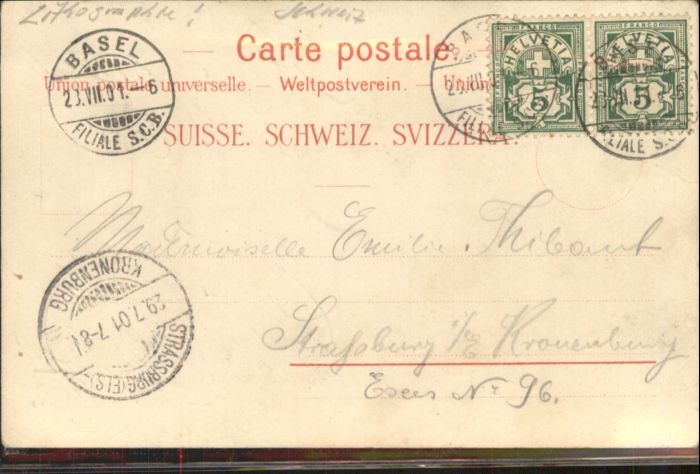 Lithographie! Schweiz
Carte postale.
Union postale universelle. – Weltpostverein. – Union
SUISSE. SCHWEIZ. SVIZZERA.
BASEL
23.VII.01.–6
FILIALE S.C.B.
HELVETIA
FRANCO
5
HELVETIA
FRANCO
5
FILIALE S.C.B.
FILIALE S.C.B.
Mademoiselle Emilie Thibaut
Straßburg i/E Kronenburg
No 96.
STRASSBURG (ELS)
KRONENBURG
29.7.01.7-8